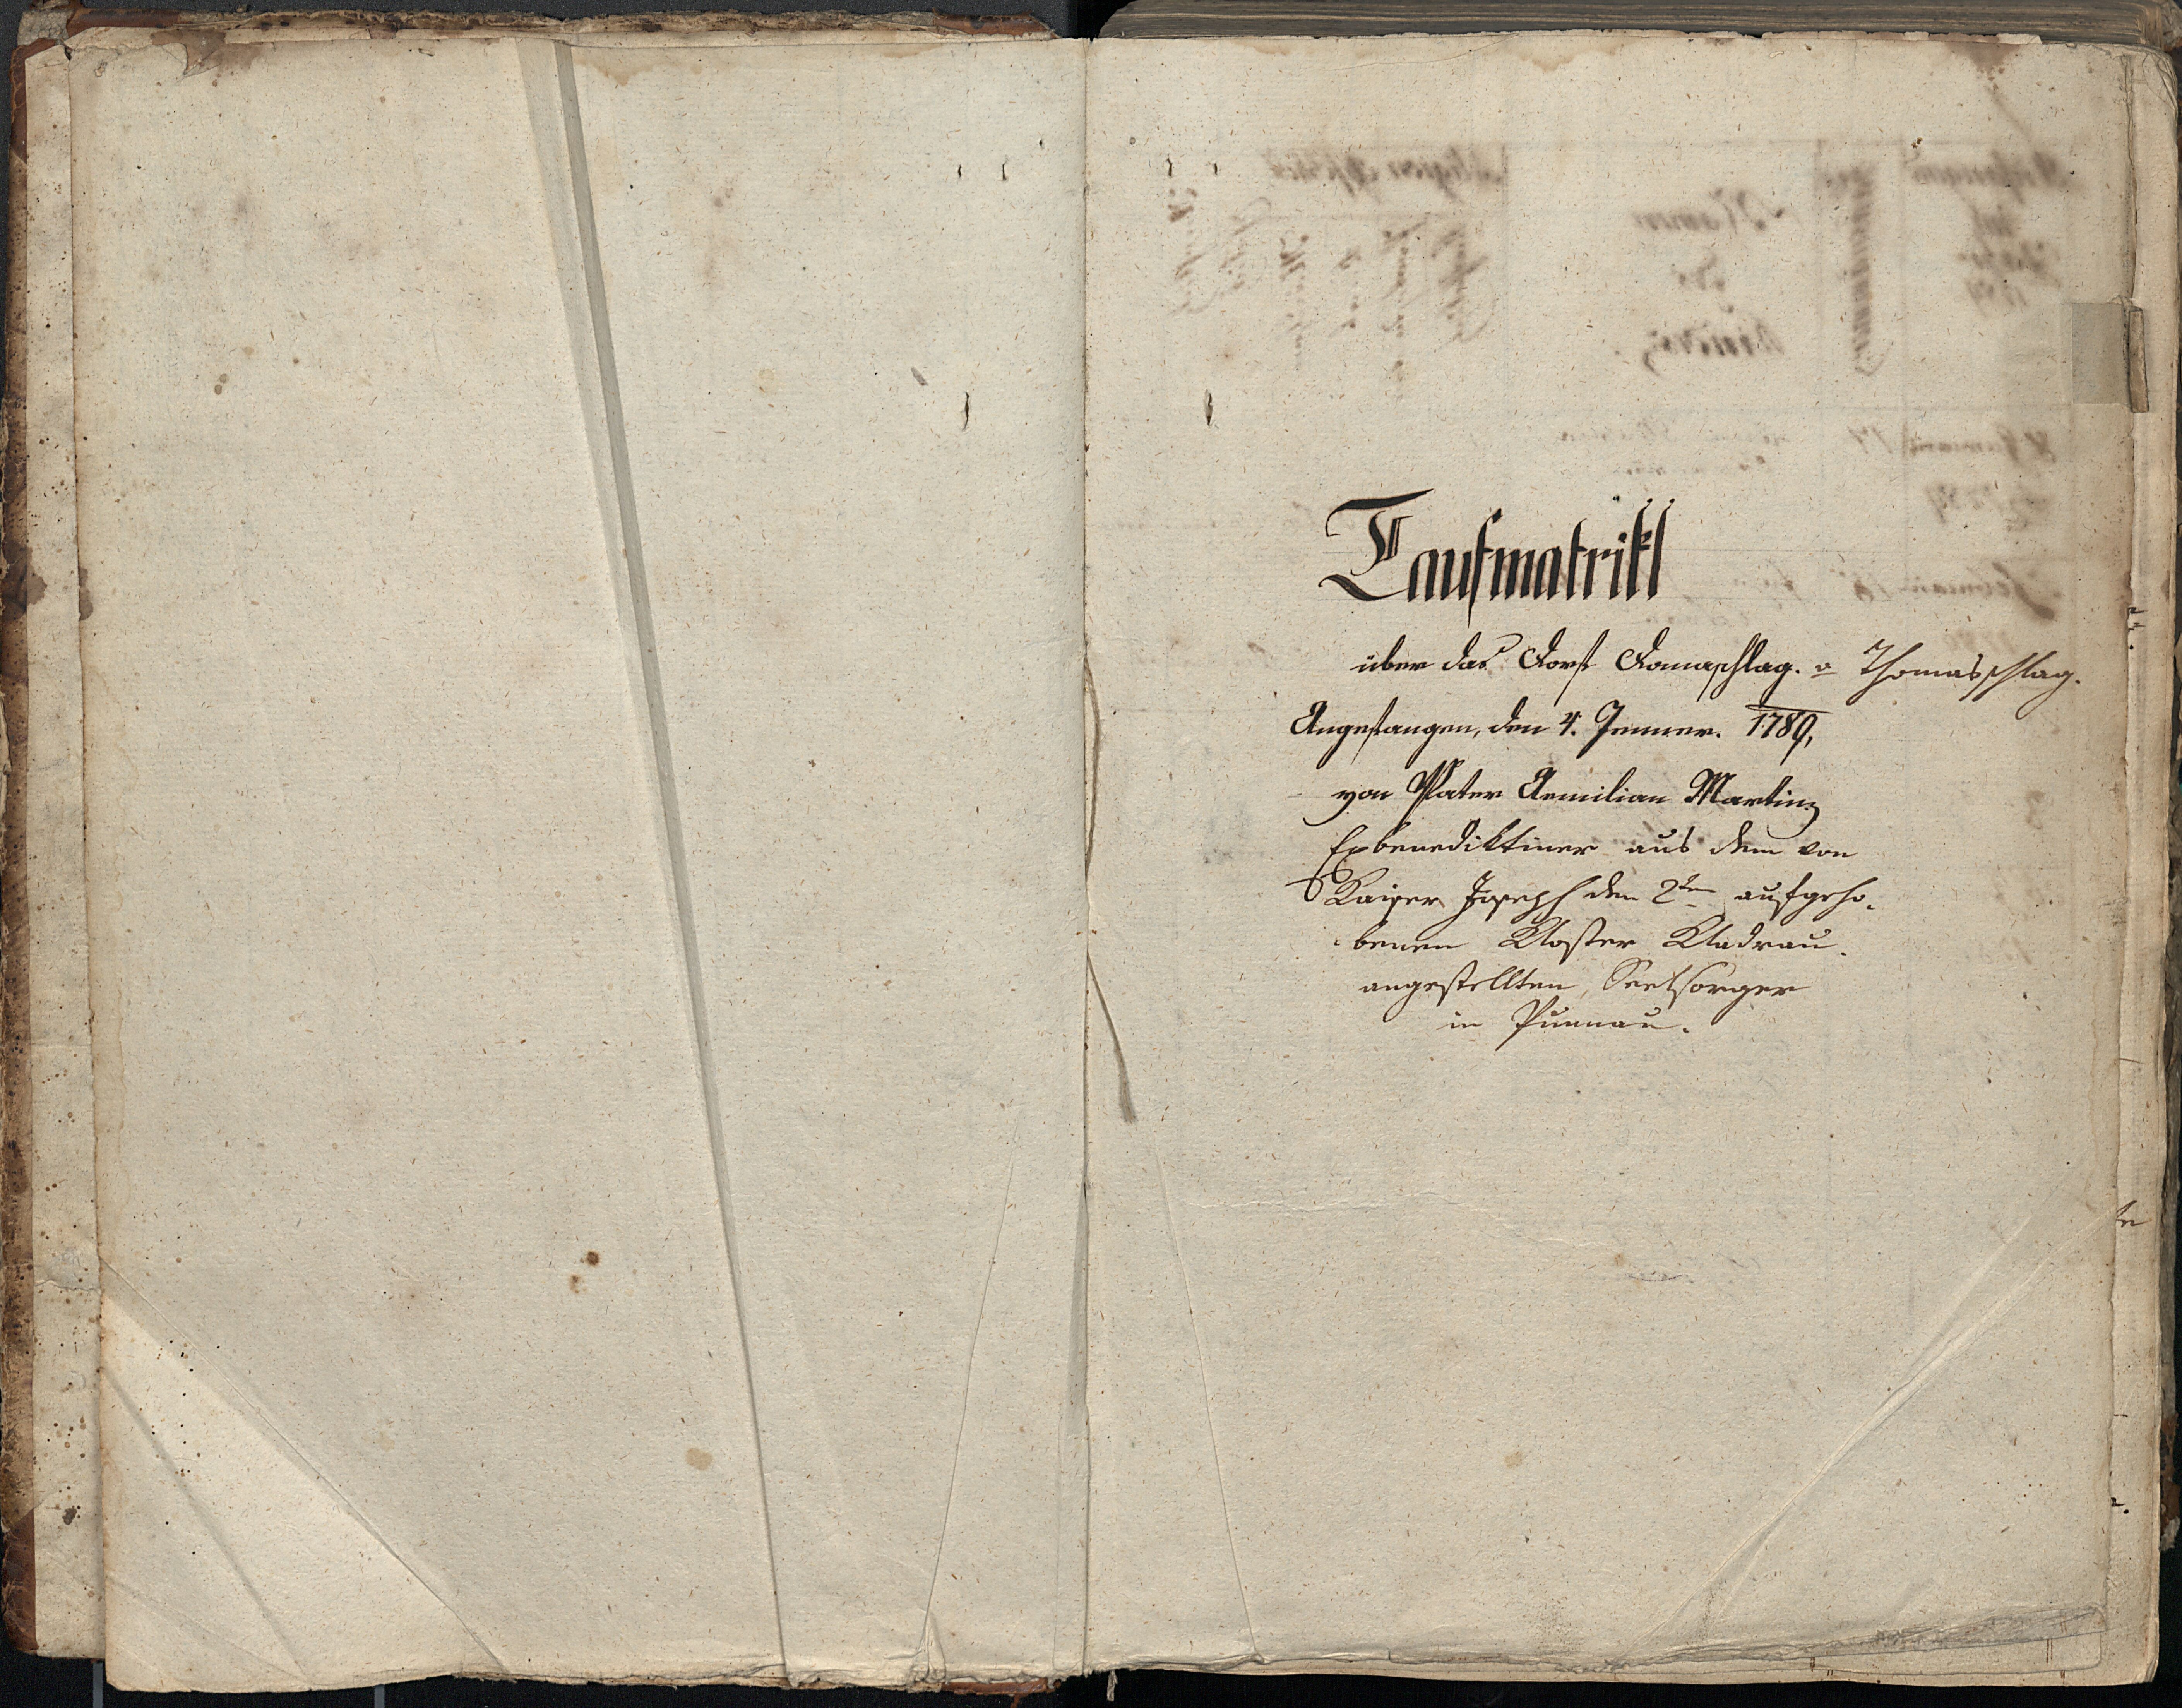 Taufmatrikl
über das Dorf Domaschlag. o Thomasschlag.
Angefangen, den 4. Jenner. 1789,
von Pater Aemilian Martinz
Exbenediktiner aus dem von
Kaiser Joseph den 2ten aufgeho-
benen Kloster Kladrau.
angestellten Seelsorger
in Purnau.